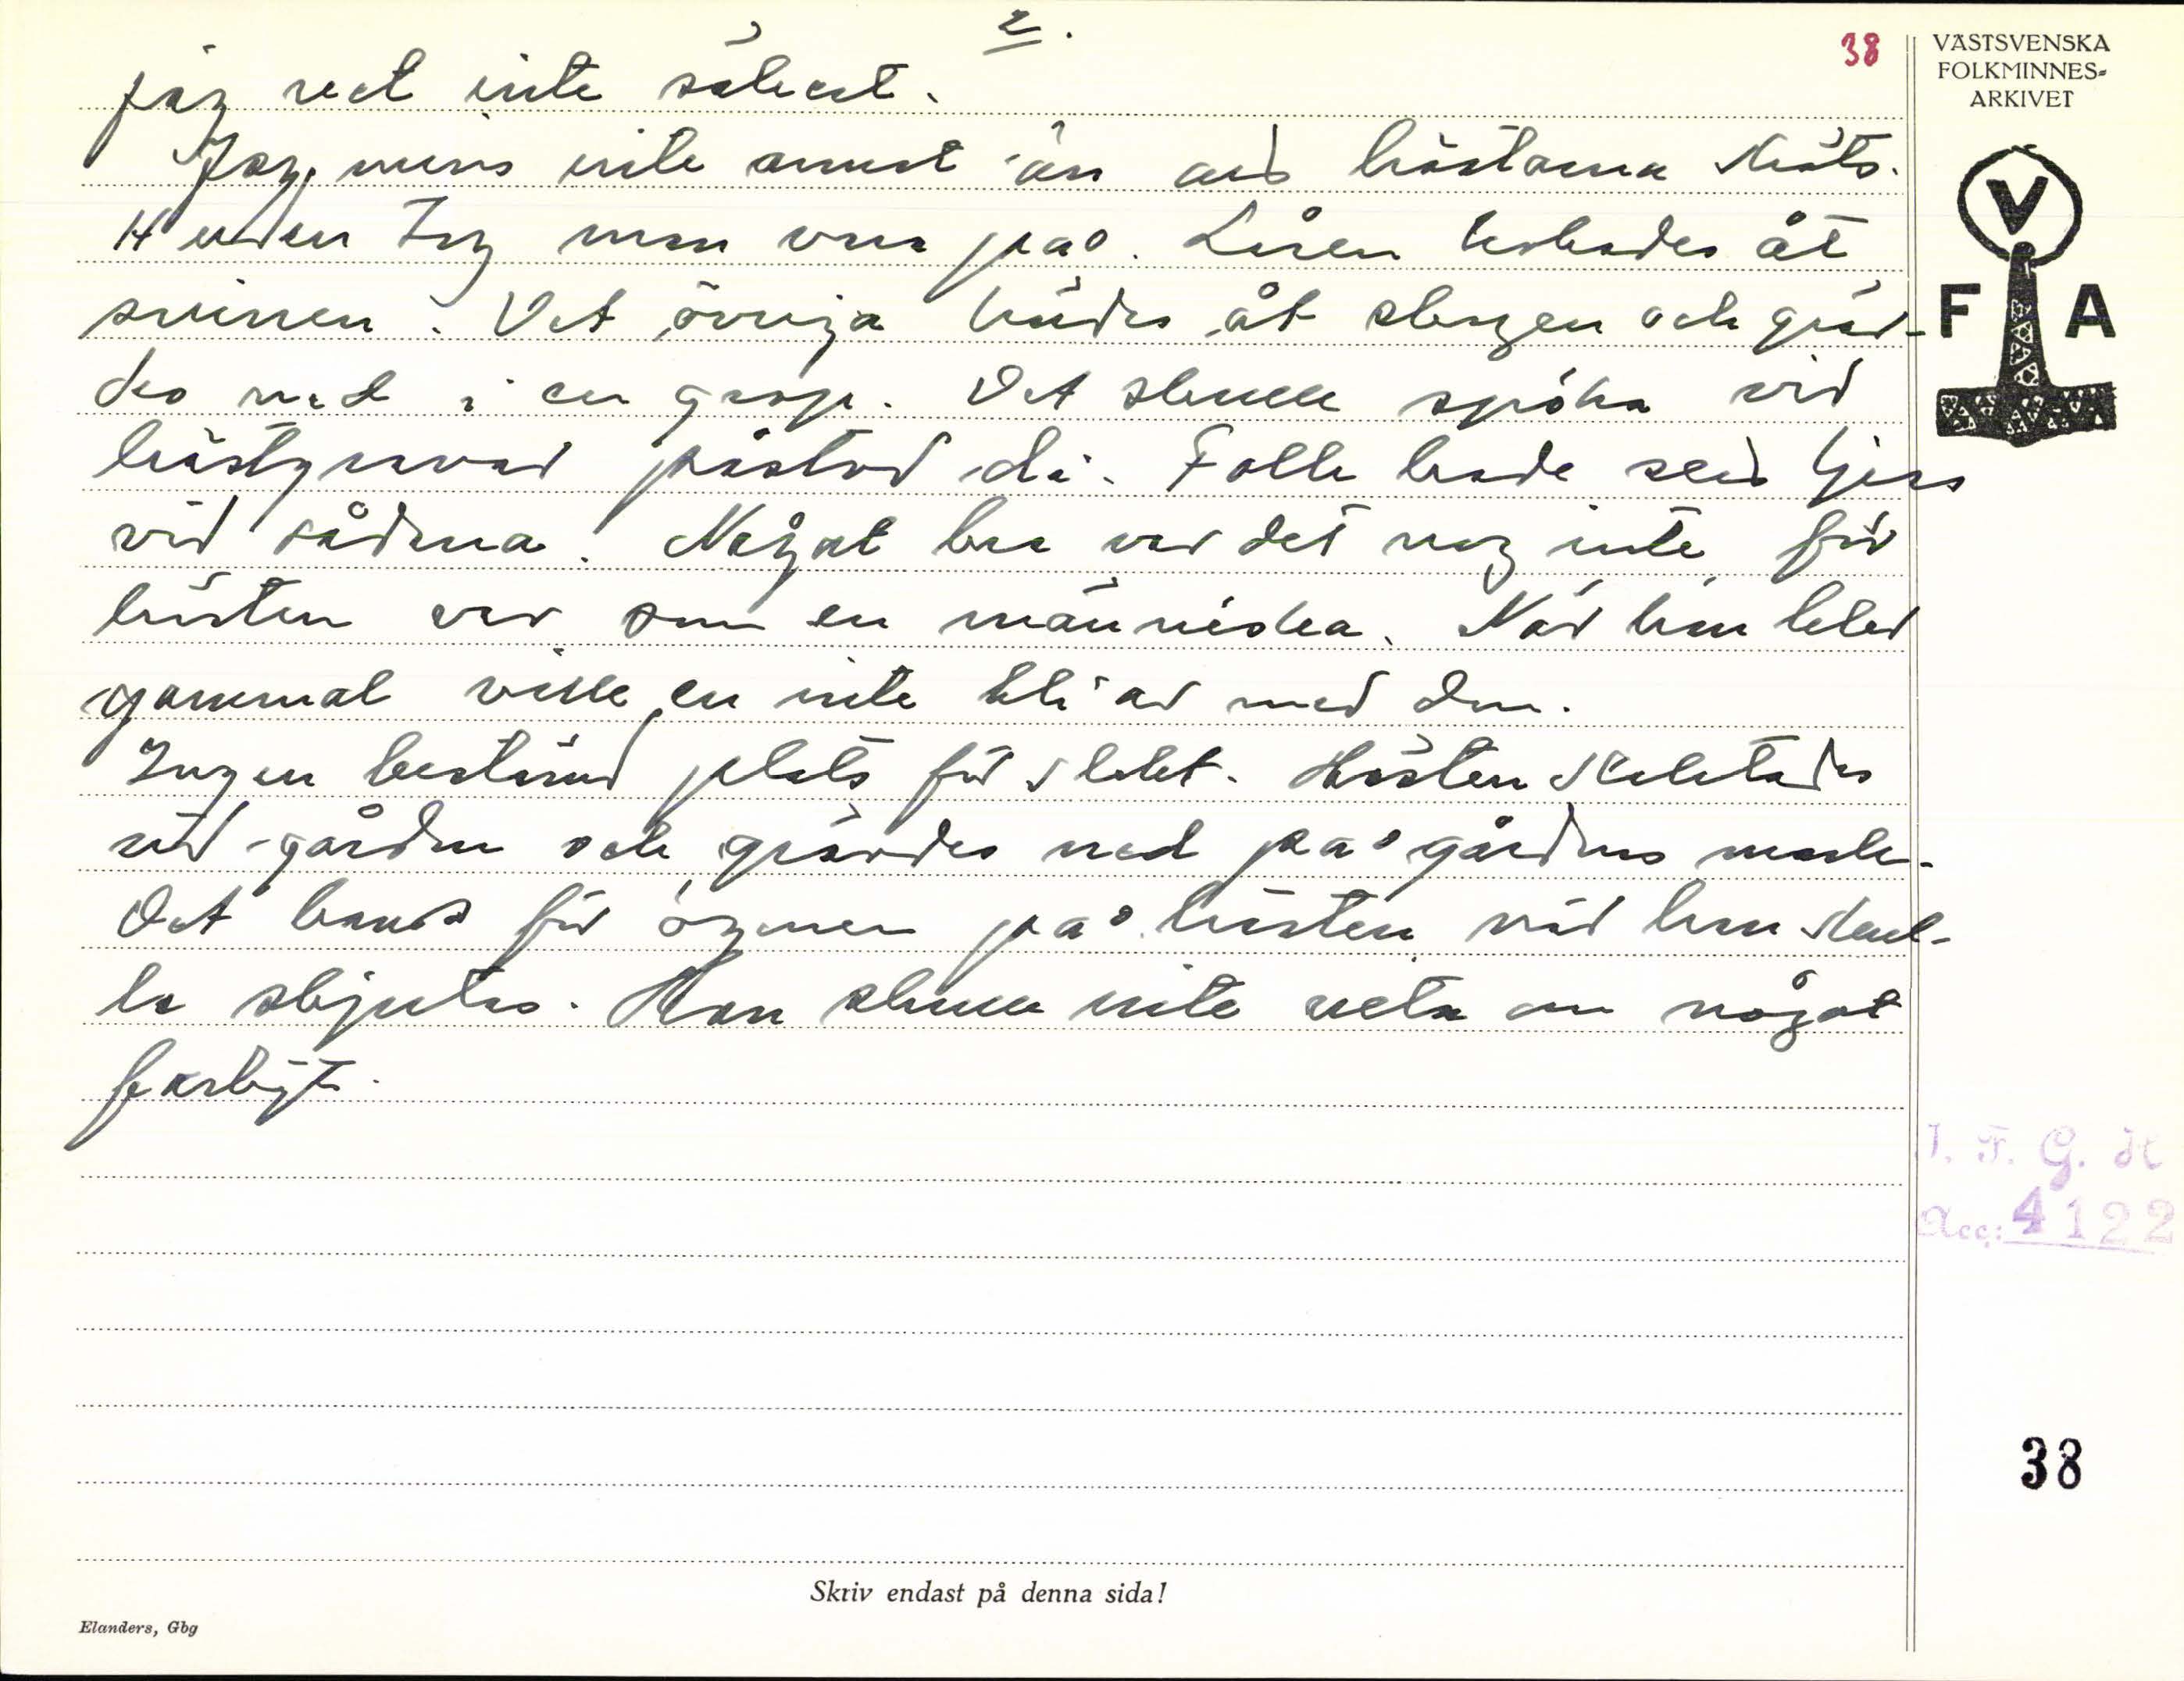 2.
38
VÄSTSVENSKA
FOLKMINNES-
ARKIVET
jag vet inte säkert.
Jag minns inte annat än att hästarna sköts.
Huden tog man vara på. Låren kokades åt
svinen. Det övriga åt skogen och gräv-
des ned i en grop. Det skulle spöka vid
hästgravar påstod di. Folk hade sett ljus
vid sådana. Något bra var det nog inte för
hästen var som en människa. När han blev
gammal ville en inte bli av med den.
Ingen bestämd plats för slakt. Hästen slaktades
vid gården och grävdes ned på gårdens mark.
Det bands för ögonen på hästen när han skul-
le skjutas. Han skulle inte veta om något
farligt.
V
F A
I. F. G. H
Acc: 4122
38
Skriv endast på denna sida!
Elanders, Gbg